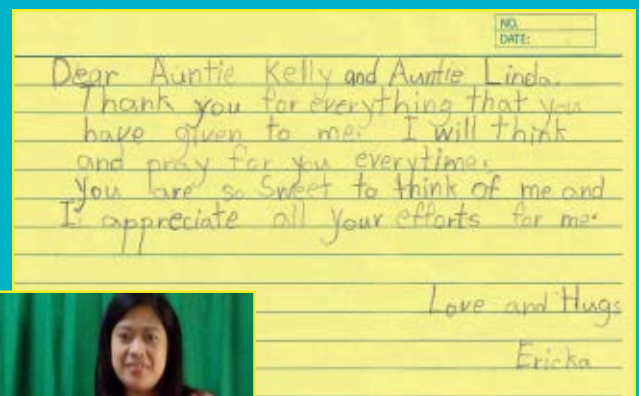 NO.
DATE:
Dear Auntie Kelly and Auntie Linda.
Thank you for everything that you
have given to me. I will think
and pray for you everytime.
You are so sweet to think of me and
I appreciate all your efforts for me.
Love and Hugs
Ericka